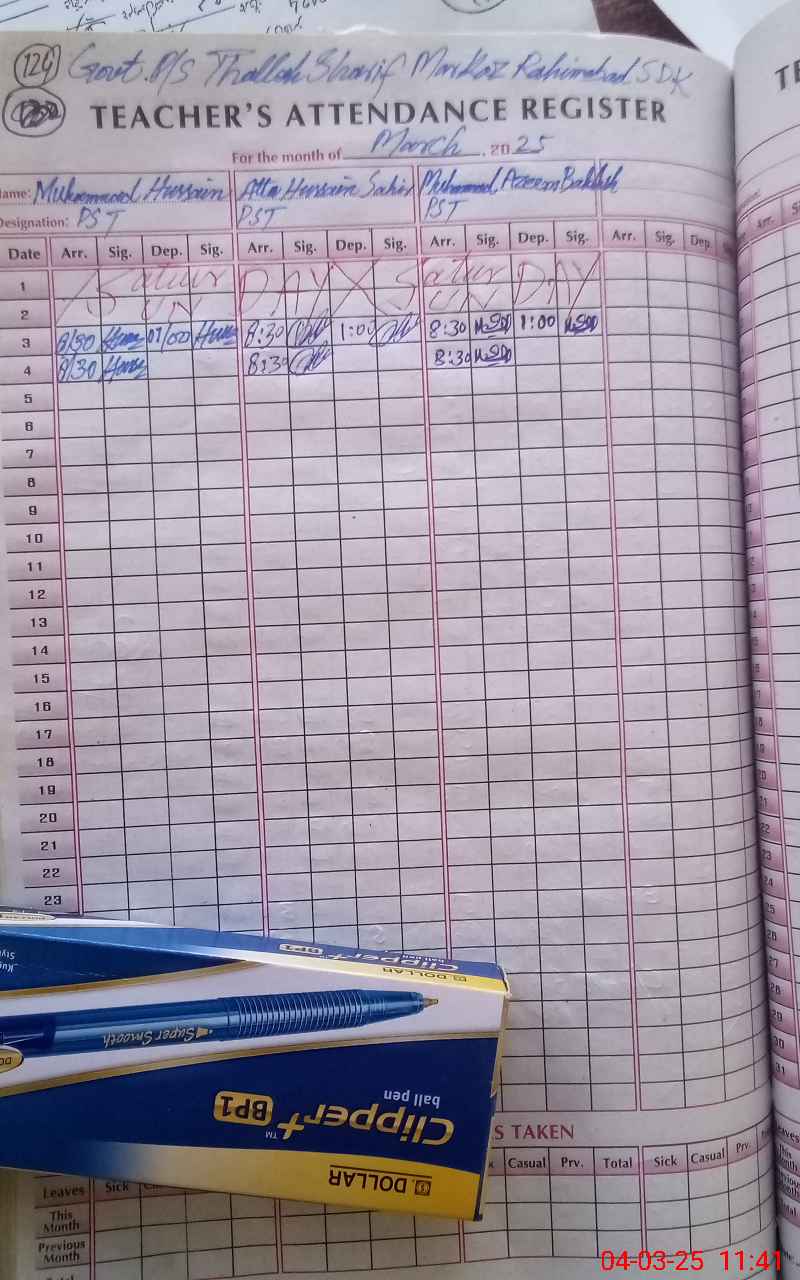 129 Govt. P/S Thallah Sharif Markaz Rahimabad SDK
TEACHER'S ATTENDANCE REGISTER
For the month of March, 2025
Name: Muhammad Hussain Atta Hussain Sabir Muhammad Azeem Bakhsh
Designation: PST PST PST
Date Arr. Sig. Dep. Sig. Arr. Sig. Dep. Sig. Arr. Sig. Dep. Sig. Arr. Sig. Dep.
1 Satur DAY Satur DAY
2 SUN SUN
3 8/30 01/00 8:30 1:00 8:30 1:00
4 8/30 8:30 8:30
5
6
7
8
9
10
11
12
13
14
15
16
17
18
19
20
21
22
23
DOLLAR
Clipper+
BP1
Super Smooth
Clipper+ BP1 TM
ball pen
DOLLAR
S TAKEN
Casual Prv. Total Sick Casual Prv.
Leaves Sick
This Month
Previous Month
Total
TE
Arr.
22
23
24
25
26
27
28
29
30
31
Leaves
This Month
04-03-25 11:41